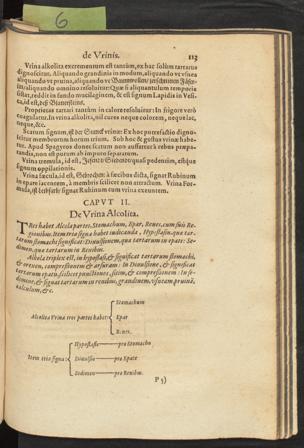 6
de Vrinis. 113
Vrina alkolita excrementum est tantum, ex hac solùm tartarus
dignoscitur. Aliquando grandinis in modum, aliquando vt vsnea
aliquando vt pruina, aliquando vt Baumwollen
aliquando omnino resoluitur: Quæ si aliquantulum temporis
sistat, reddit in fundo mucilaginem, & est signum Lapidis in Vesi-
ca, id est, deß Blatersteins.
Proprietas tartari tantùm in calore resoluitur: In frigore verò
coagulatur. In vrina alkolita, nil cures neque colorem, neque lac,
neque, &c.
Statum signum, ist der Stand vrinæ: Ex hoc potes ratio digno-
scitur membrorum horum trium. Sub hoc & gustus vrinæ habe-
tur. Apud Spagyros donec statum non aufferret à rebus præpa-
tandis, non est purum ab impuro separatum.
Vrina tremula, id est, quasi pendenium, estque
signum oppilationis.
Vrina fæcula, id est, à fæcibus dicta, signat Rubinum
in epate iacentem, à membris scilicet non attractum. Vrina For-
mula, ist signat Rubinum cum vrina exeuntem.
CAPVT II.
De Vrina Alcolita.
TRes habet Alcola partes, Stomachum, Epar, Renes, cum suis Re-
gionibus. Item tria signa habet indicanda, Hypostasin, quæ tar-
tarum stomachi significat: Diuulsionem, quæ tartarum in epate: Se-
dimen, quæ tartarum in Renibus.
Alkola triplex est, in hypostasi, & significat tartarum stomachi,
& orexeos, compressionem & arsuram: In Diuulsione, & significat
tartarum epatis, scilicet punctiones, sitim, & compressionem: In se-
dimine, & signat tartarum in renibus, grandinem, vsneam, pruinã,
calculum, &c.
Stomachum
Alcolita Vrina tres partes habet Epar
Renes.
Hypostasis pro Stomacho
Item tria signa Diuulsio pro Epate
Sedimen pro Renibus.
P 3